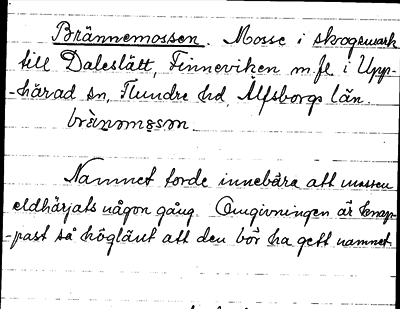 Brännemossen. Mosse i skogsmark
till Daleslätt, Finneviken m.fl. i Upp-
-härad sn, Flundre hd, Älfsborgs län.
brànəmɔsən
Namnet torde innebära att mossen
eldhärjats någon gång. Omgivningen är knap-
-past så höglänt att den bör ha gett namnet.